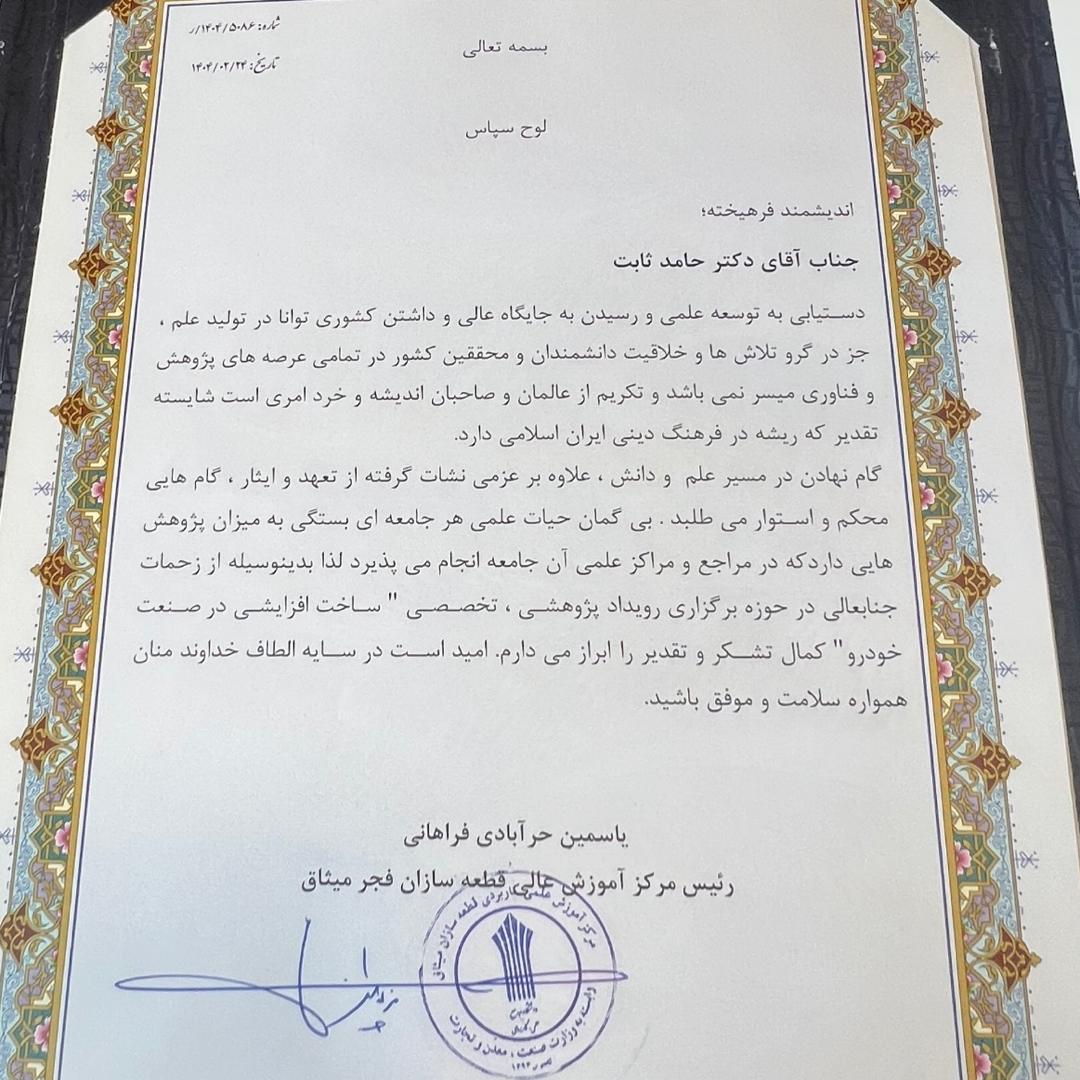 شماره: ۱۴۰۴/۵۰۸۶/ر
تاریخ: ۱۴۰۴/۰۲/۲۴
بسمه تعالی
لوح سپاس
اندیشمند فرهیخته؛
جناب آقای دکتر حامد ثابت
دستیابی به توسعه علمی و رسیدن به جایگاه عالی و داشتن کشوری توانا در تولید علم ،
جز در گرو تلاش ها و خلاقیت دانشمندان و محققین کشور در تمامی عرصه های پژوهش
و فناوری میسر نمی باشد و تکریم از عالمان و صاحبان اندیشه و خرد امری است شایسته
تقدیر که ریشه در فرهنگ دینی ایران اسلامی دارد.
گام نهادن در مسیر علم و دانش ، علاوه بر عزمی نشات گرفته از تعهد و ایثار ، گام هایی
محکم و استوار می طلبد . بی گمان حیات علمی هر جامعه ای بستگی به میزان پژوهش
هایی داردکه در مراجع و مراکز علمی آن جامعه انجام می پذیرد لذا بدینوسیله از زحمات
جنابعالی در حوزه برگزاری رویداد پژوهشی ، تخصصی " ساخت افزایشی در صنعت
خودرو" کمال تشکر و تقدیر را ابراز می دارم. امید است در سایه الطاف خداوند منان
همواره سلامت و موفق باشید.
یاسمین حرآبادی فراهانی
رئیس مرکز آموزش عالی قطعه سازان فجر میثاق
مرکز آموزش علمی کاربردی قطعه سازان میثاق
وابسته به وزارت صنعت ، معدن و تجارت